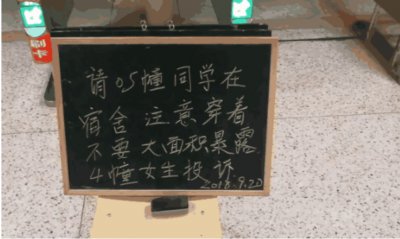 刷
卡
请05幢同学在
宿舍 注意穿着
不要大面积暴露
4幢女生投诉
2018.9.20